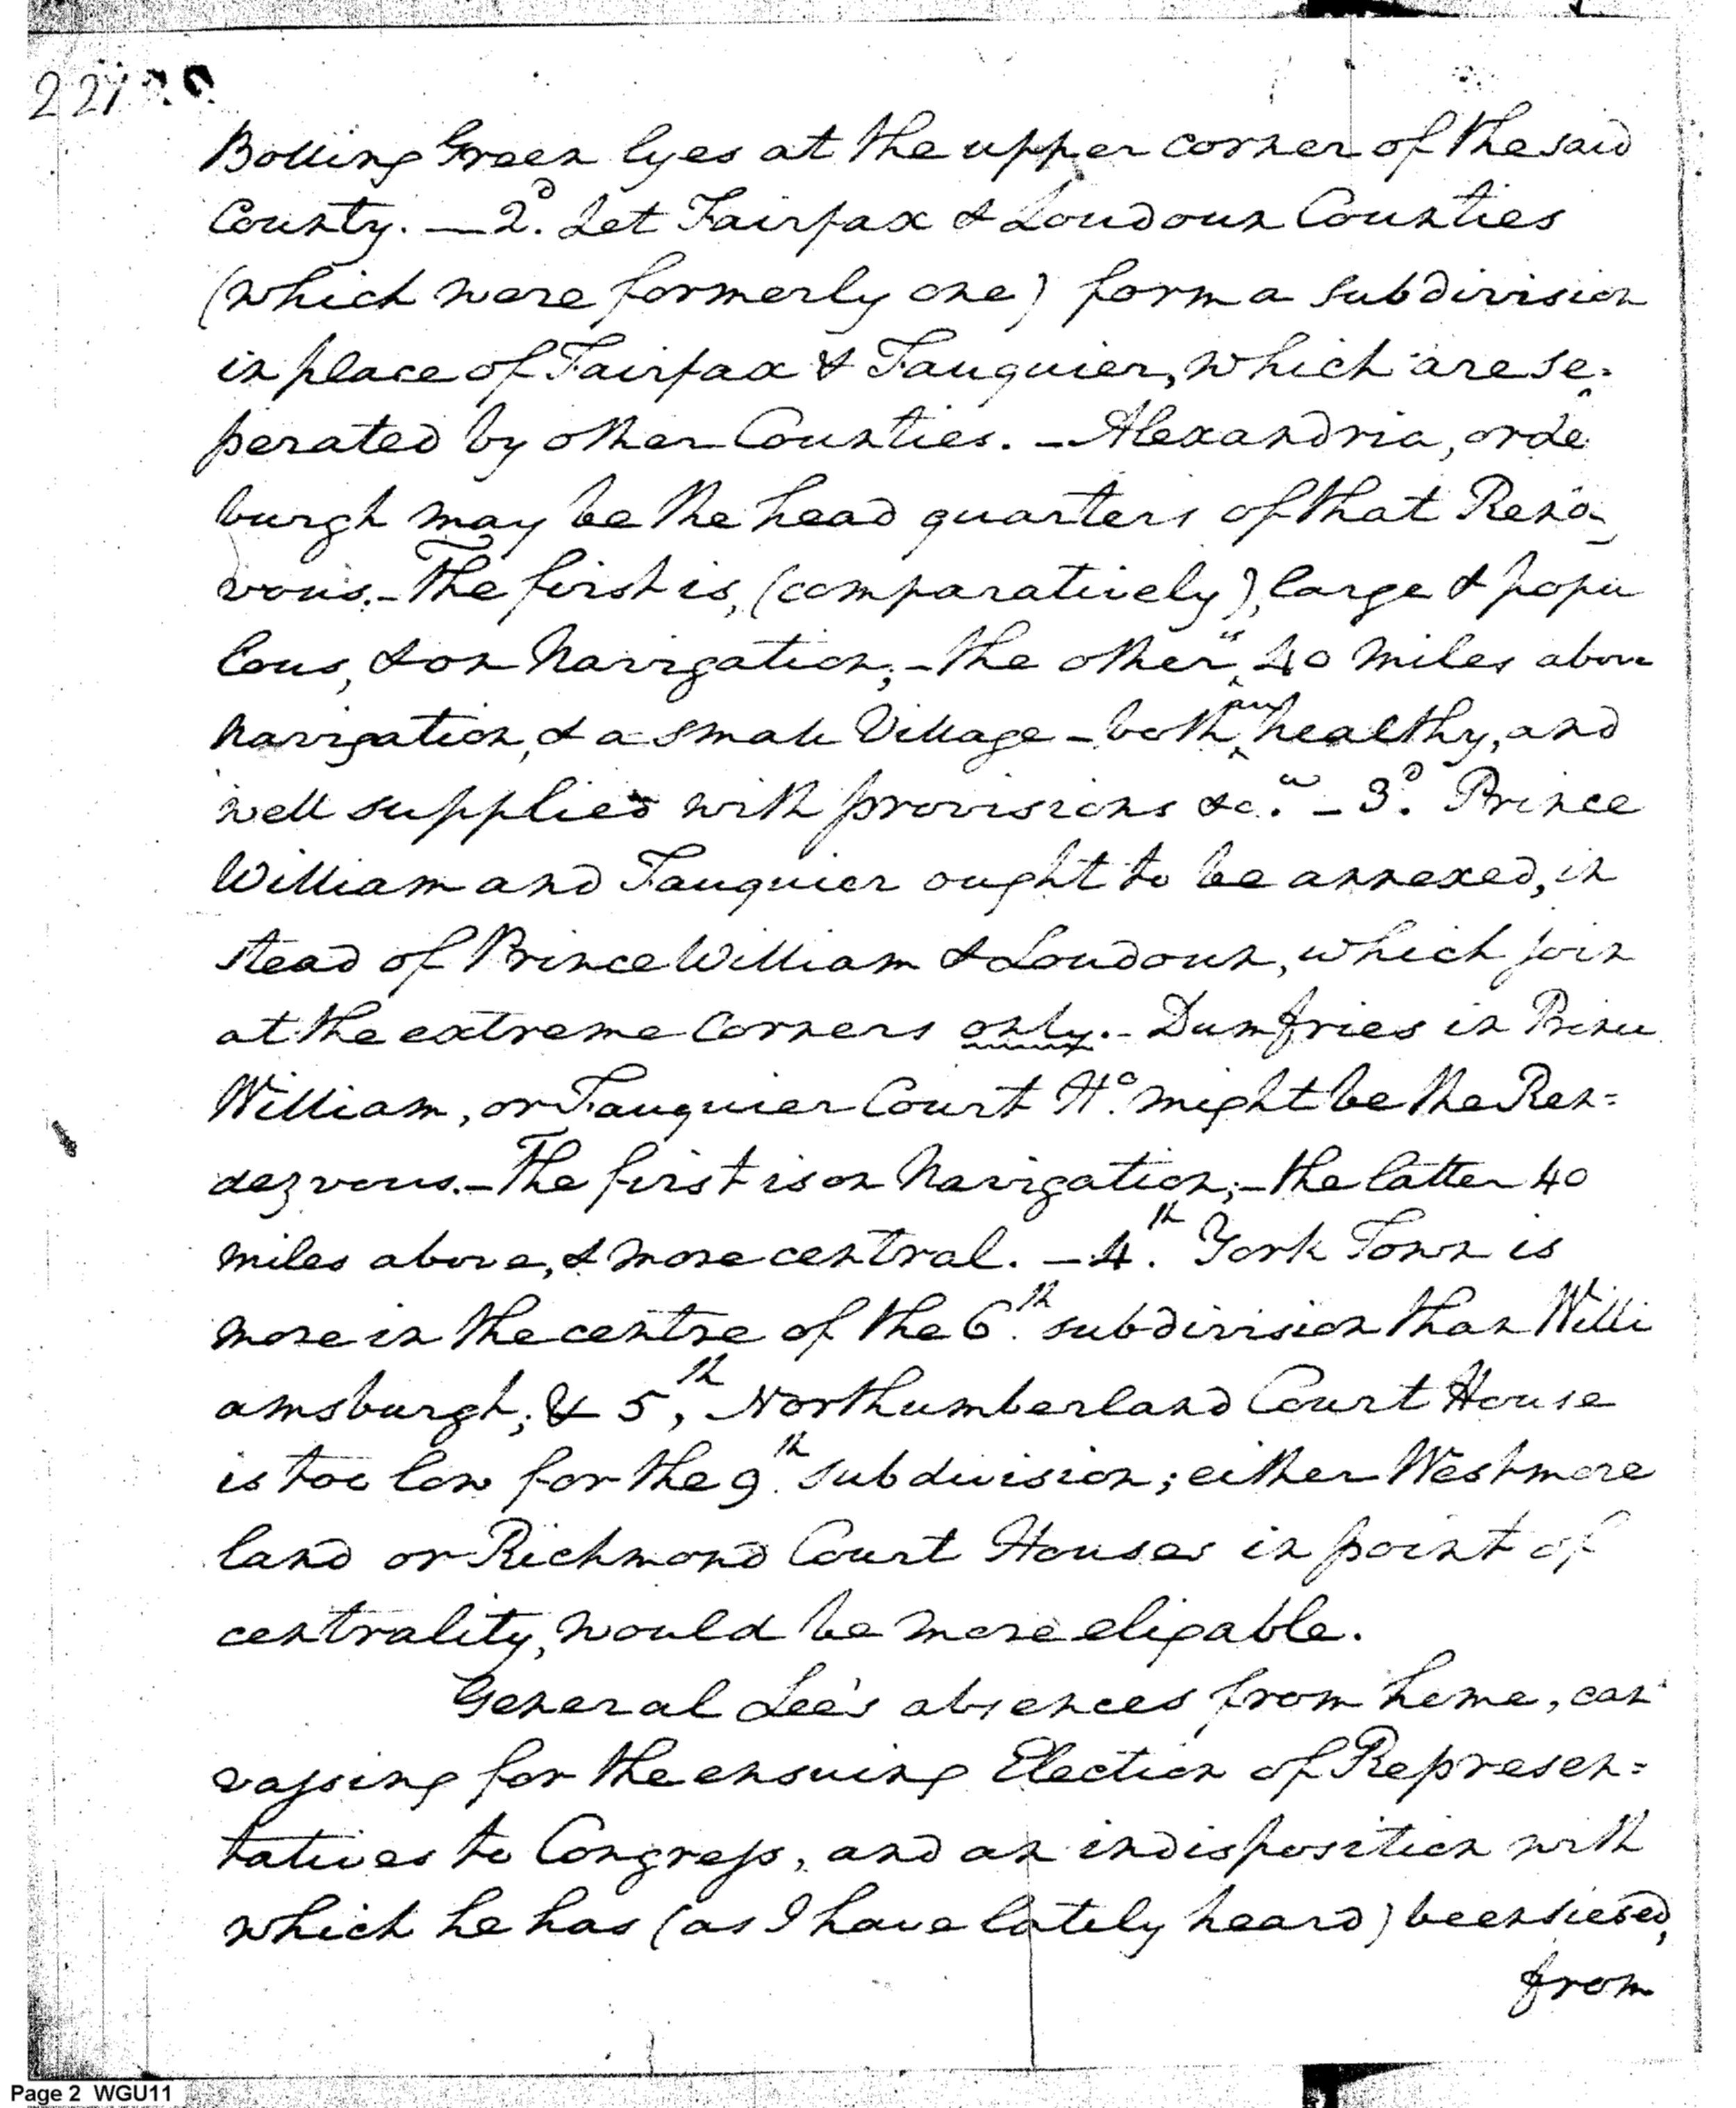 Bolling Green lyes at the upper corner of the said
County. — 2d. Let Fairfax & Loudoun Counties
(which were formerly one) form a subdivision
in place of Fairfax & Fauquier, which are se-
perated by other Counties. — Alexandria, or
burgh may be the head quarters of that
vous. — The first is, (comparatively), large & popu
lous, & on Navigation; — the other is 40 miles above
navigation, & a small Village — both are healthy, and
well supplied with provisions &ca. — 3d. Prince
William and Fauquier ought to be annexed, in
stead of Prince William & Loudoun, which join
at the extreme corners only. — Dumfries in Prince
William, or Fauquier Court Ho. might be the Ren=
dezvous. — The first is on Navigation; — the latter 40
miles above, & more central. — 4th. York Town is
more in the centre of the 6th. subdivision than Willi
amsburgh; & 5th, Northumberland Court House
is too low for the 9th. subdivision; either Westmore
land or Richmond Court Houses in point of
centrality, would be more eligable.
General Lee's absences from home, can
vassing for the ensuing Election of Represen=
tatives to Congress, and an indisposition with
which he has (as I have lately heard) been siesed,
from
Page 2 WGU11